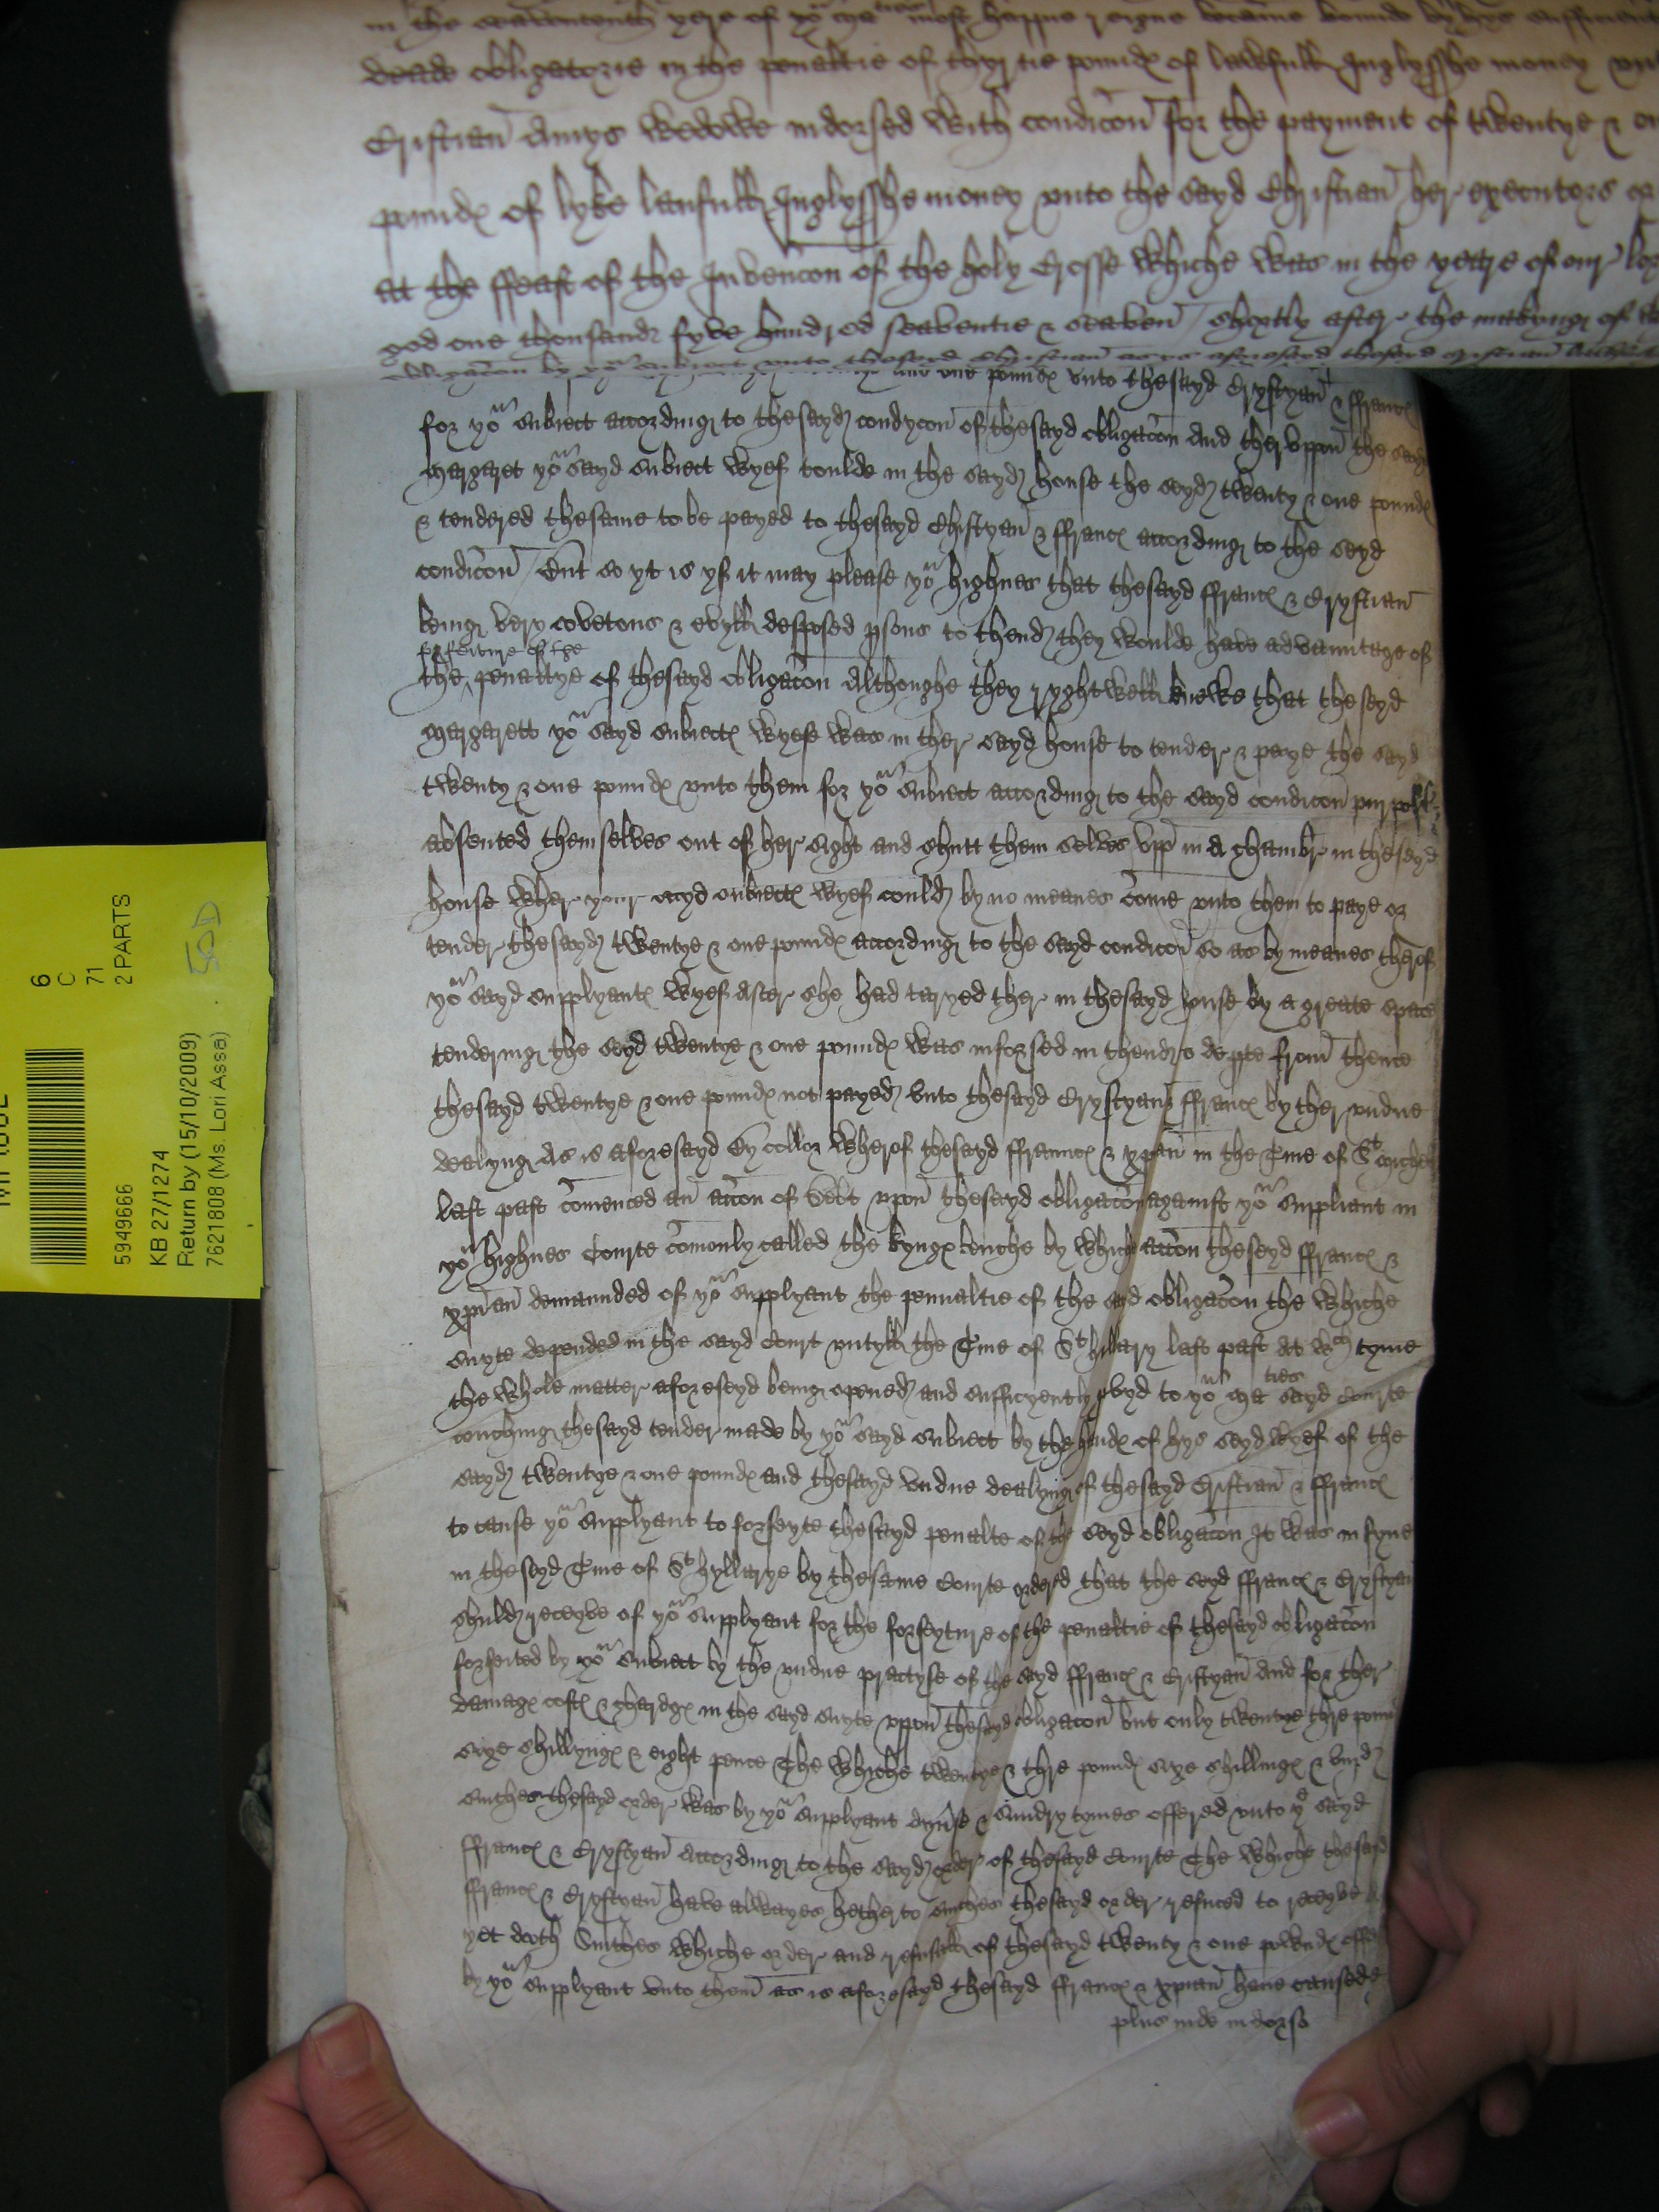 in the seavententh yere of yor maties most happie reigne became bounde by hys sufficient
deade obligatorie in the penaltie of thyrtie poundes of lawfull Inglysshe money unto
Cristian Amys Wedowe indorsed with condicon for the payment of twentye & one
poundes of lyke laufull Inglysshe money unto the sayd Christian her executors or
at the ffeast of the Invencon of the holy Crosse whiche was in the yeare of our lord
god one thousand fyve hundred seaventie & seaven / shortly after the makyng of
obligacon by yor subiect unto thesayd Christian as is aforesayd thesayd Cristian
and one poundes unto thesayd Crystyan & ffrances
for yor subiect according to thesayd condycon of thesayd obligacon And theruppon the sayd
Margaret yor sayd subiect wyef toulde in the sayd house the seyd twenty & one poundes
& tendered thesame to be payed to thesayd Christyan & ffrances according to the seyd
condicon / But so yt is yf it may please yor highnes that thesayd ffrances & Crystian
being very covetous & evyll desposed psons to thend they woulde have advauntage of
forfeiture of the
the penaltye of thesayd obligacon Althoughe they ryght well knewe that the seyd
Margarett yor sayd subiectes wyefe was in ther sayd house to tender & paye the sayd
twenty & one poundes unto them for yor subiect according to the sayd condicon purposly
absented themselves out of her sight and shutt them selves upp in a chambr in theseyd
house wher your seyd subiectes wyef could by no meanes come unto them to paye or
tender thesayd twentye & one poundes according to the sayd condicon so as by meanes therof
yor sayd supplyantes wyef after she had taryed ther in thesayd house by a greate space
tendering the seyd twentye & one poundes was inforsed in thend to depte from thence
thesayd twentye & one poundes not payed unto thesayd Crystyan & ffrances by ther undue
dealyng As is aforesayd By collor wherof thesayd ffrances & xpian in the Tme of St Michell
last past comenced an accon of Debt upon thesayd obligacon against yor suppliant in
yor highnes Courte comonly called the kynges benche by which accon theseyd ffrances &
xpian demaunded of yor supplyant the pennaltie of the sayd obligacon the whiche
suyte depended in the sayd Court untyll the Tme of St hillary last past At wch tyme
the whole matter aforeseyd being opened and sufficyently pvyd to yor maties sayd Courte
touching thesayd tender made by yor sayd subiect by the handes of hys seyd wyef of the
sayd twentye & one poundes and thesayd undue dealyng of thesayd Cristian & ffrances
to cause yor supplyant to forfeyte thesayd penalte of the seyd obligacon It was in fyne
in theseyd Tme of St hyllarye by thesame Courte ordered that the seyd ffrances & Crystyan
shuld receyve of yor supplyant for the forfeyture of the penaltie of thesayd obligacon
forfeited by yor subiect by the undue practyse of the sayd ffrances & Cristyan And for ther
damages costes & chardges in the sayd suyte uppon thesayd obligacon but only twentye thre pound
sixe shillynges & eight pence The whiche twentye & thre poundes sixe shillinges & viijd
sithes thesayd order was by yor supplyant dyvse & sundry tymes offered unto ye sayd
ffrances & Crystyan According to the sayd order of thesayd Courte The whiche thesayd
ffrances & Crystyan have allwayes hetherto sithes thesayd order refuced to receyve
yet doth Sithes whiche order and refusall of thesayd twenty & one powndes
by yor supplyant unto them as is aforesayd thesayd ffrances & xpian have caused
plus inde in dorso
6
C
71
2 PARTS
5949666
KB 27/1274
Return by (15/10/2009)
7621808 (Ms. Lori Assa)